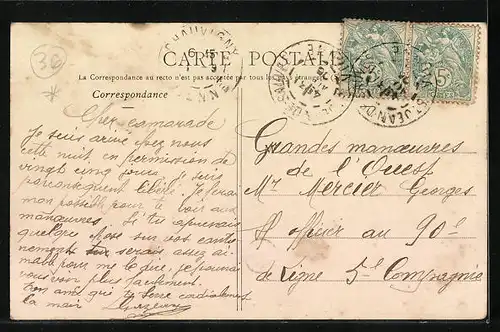 30
*
CHAUVIGNY
6 15
CARTE POSTALE
La Correspondance au recto n'est pas acceptée par tous les pays étrangers
Correspondance
Cher camarade
Je suis arrivé chez nous
cette nuit en permission de
vingt cinq jours. Je suis
par conséquent libéré. Je ferai
mon possible pour te voir aux
manœuvres. Si tu apprenais
quelque chose sur vos canton-
nements tu serais assez ai-
mable pour me le dire, je pourrai
vous voir plus facilement.
ton ami qui te serre cordialement
la main
Grandes manœuvres
de l'Ouest
Mr Mercier Georges
officier au 90e
de Ligne 5e Compagnie
5c